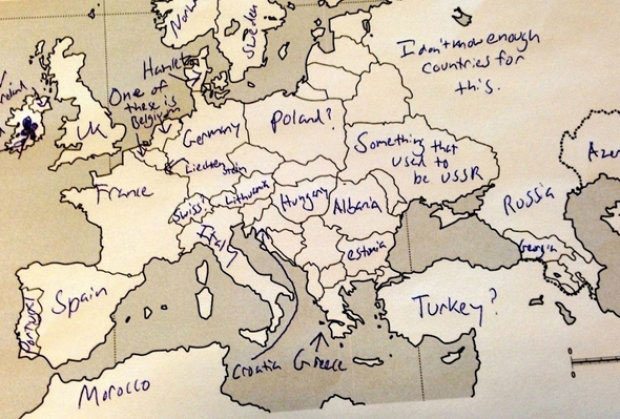 Norw
Sweden
I don't know enough
countries for
this.
Hamlet
One of
these is
Belgium
Ireland
UK
Germany
Poland?
Something that
used to
be USSR
Azer
Liechten stein
France
Swiss?
Lithuania
Hungary
Albania
Russia
Italy
estonia
Georgia
Portugal
Spain
Turkey?
Croatia
Greece
Morocco